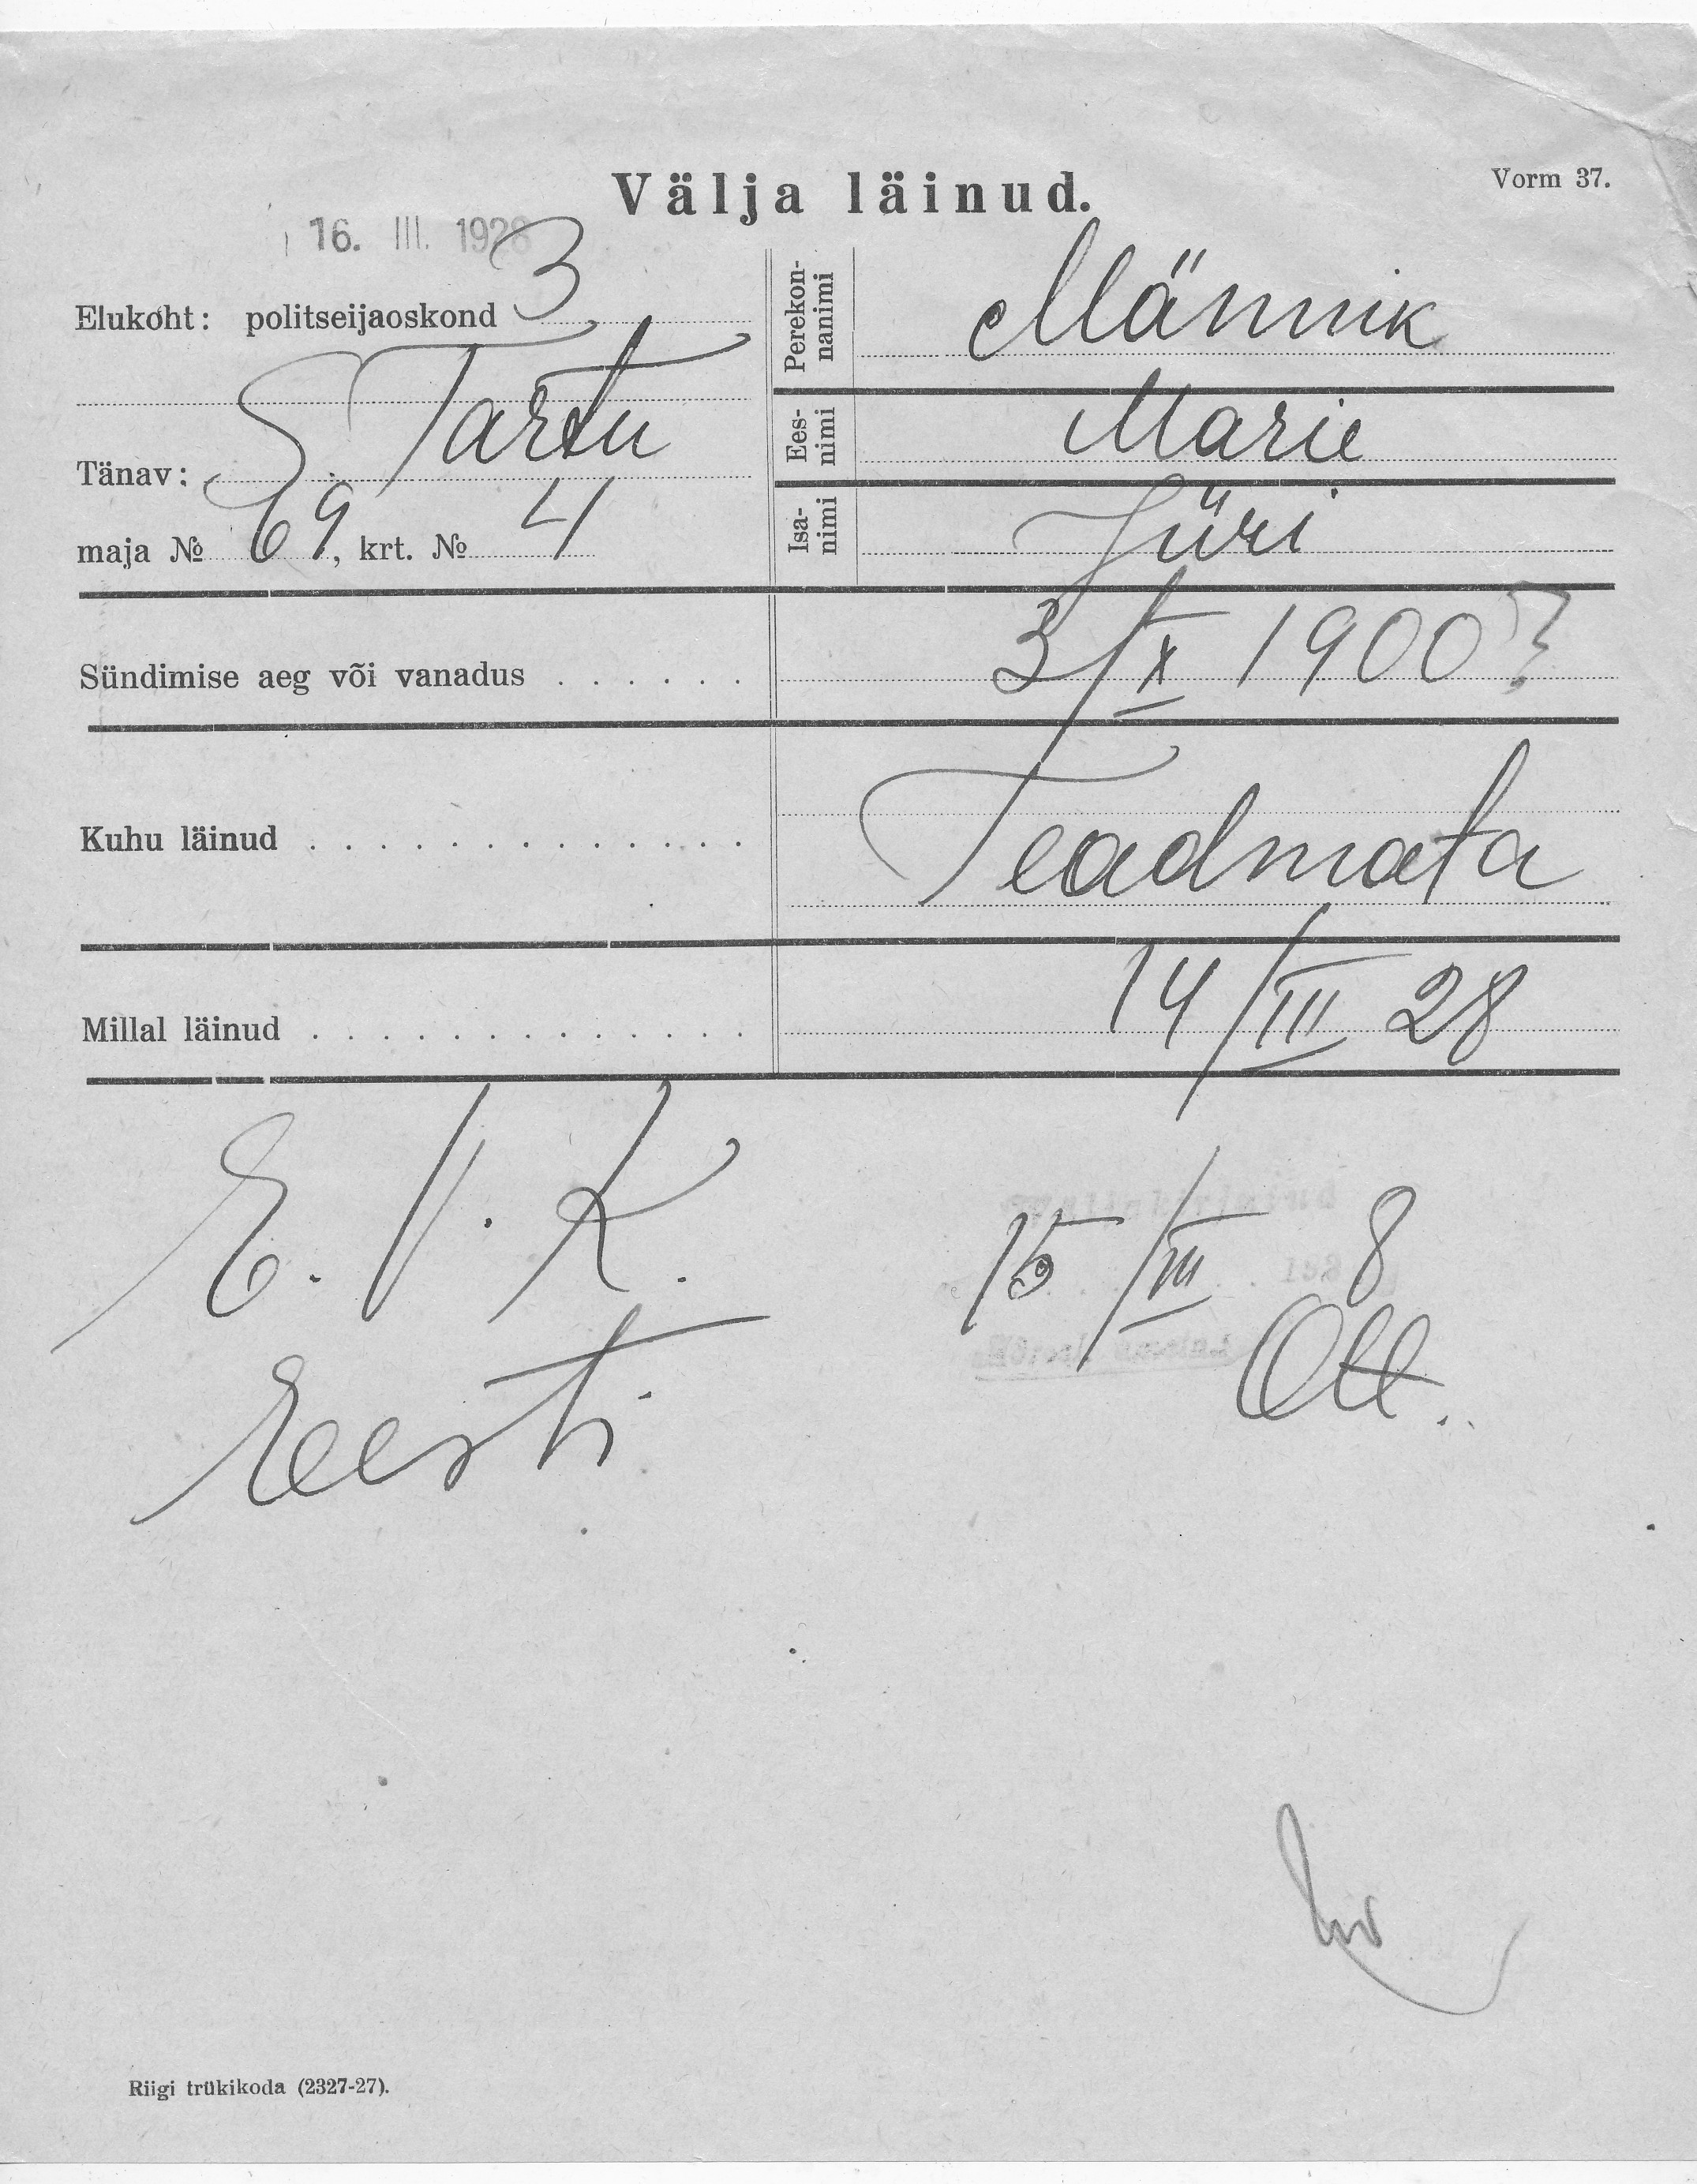 Vorm 37.
Välja läinud.
16. III. 1928
Elukoht: politseijaoskond 3
Tänav: S. Tartu
maja № 69, krt. № 4
Perekon-
nanimi Männik
Ees-
nimi Marie
Isa-
nimi Jüri
Sündimise aeg või vanadus . . . . . . 3/X 1900?
Kuhu läinud . . . . . . . . . . . . . Teadmata
Millal läinud . . . . . . . . . . . . . 14/III 28
E. V. K.
Eesti
15/III 8
Ott.
Riigi trükikoda (2327-27).